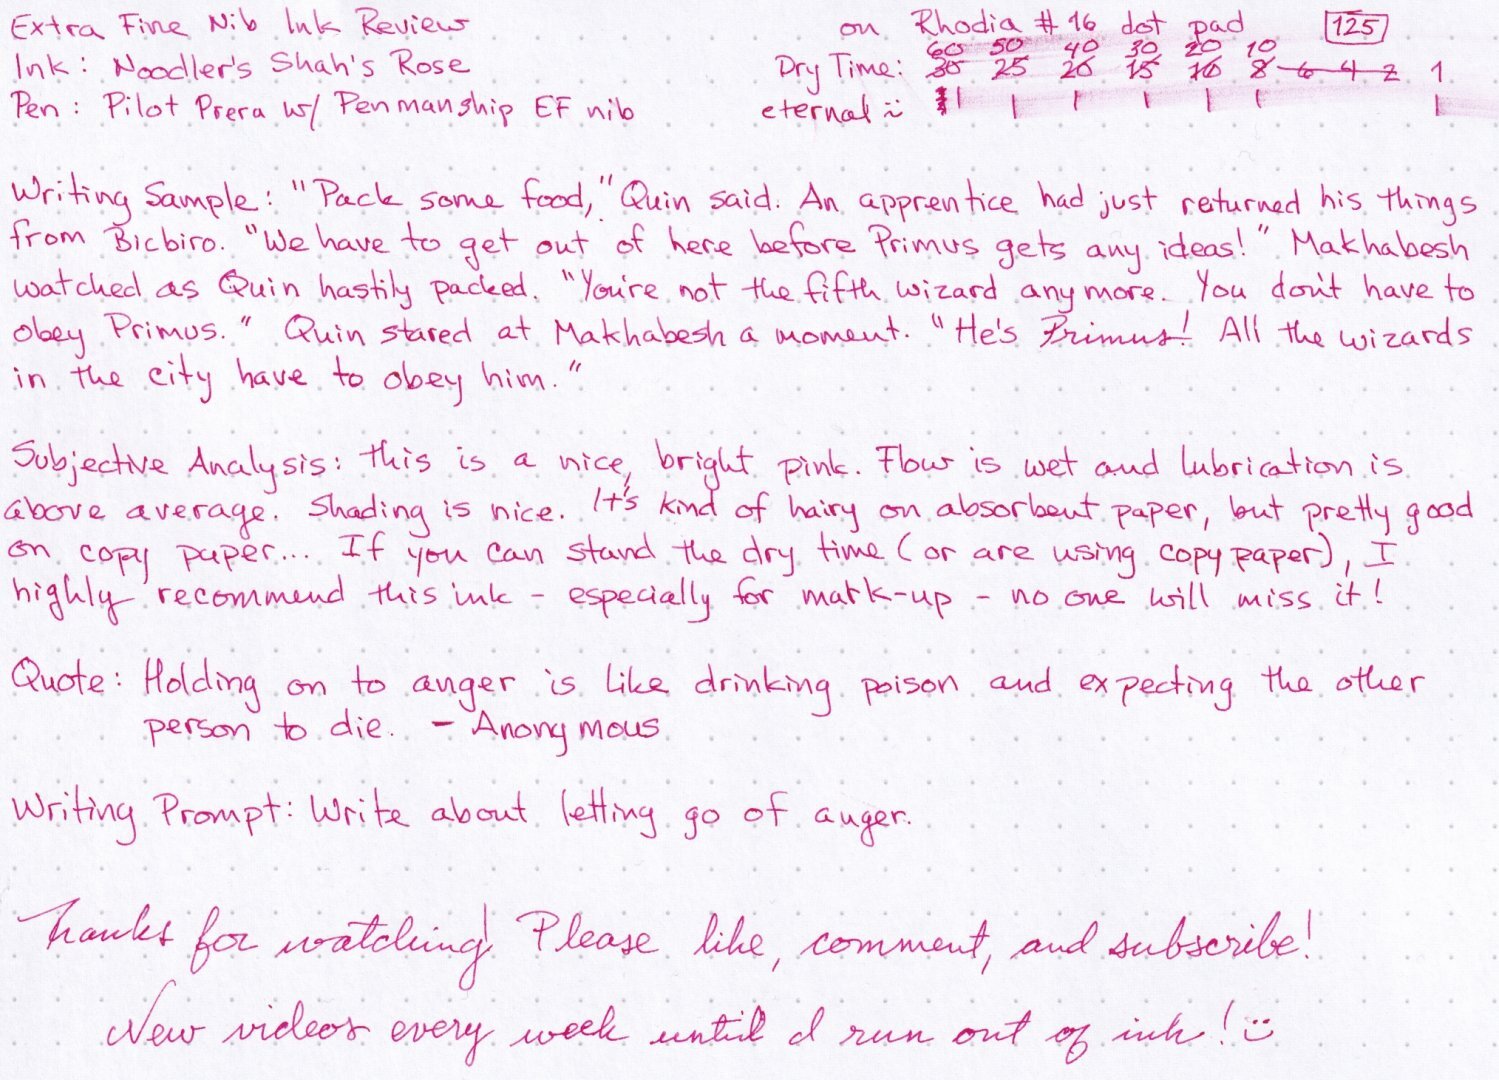 Extra Fine Nib Ink Review on Rhodia #16 dot pad 125
60 50 40 30 20 10
Ink: Noodler's Shah's Rose Dry Time: 30 25 20 15 10 8 6 4 2 1
Pen: Pilot Prera w/ Penmanship EF nib eternal :)
Writing Sample: "Pack some food," Quin said. An apprentice had just returned his things
from Bicbiro. "We have to get out of here before Primus gets any ideas!" Makhabesh
watched as Quin hastily packed. "You're not the fifth wizard anymore. You don't have to
obey Primus." Quin stared at Makhabesh a moment. "He's Primus! All the wizards
in the city have to obey him."
Subjective Analysis: This is a nice, bright pink. Flow is wet and lubrication is
above average. Shading is nice. It's kind of hairy on absorbent paper, but pretty good
on copy paper... If you can stand the dry time (or are using copy paper), I
highly recommend this ink - especially for mark-up - no one will miss it!
Quote: Holding on to anger is like drinking poison and expecting the other
person to die. - Anonymous
Writing Prompt: Write about letting go of anger.
Thanks for watching! Please like, comment, and subscribe!
New videos every week until I run out of ink! :)